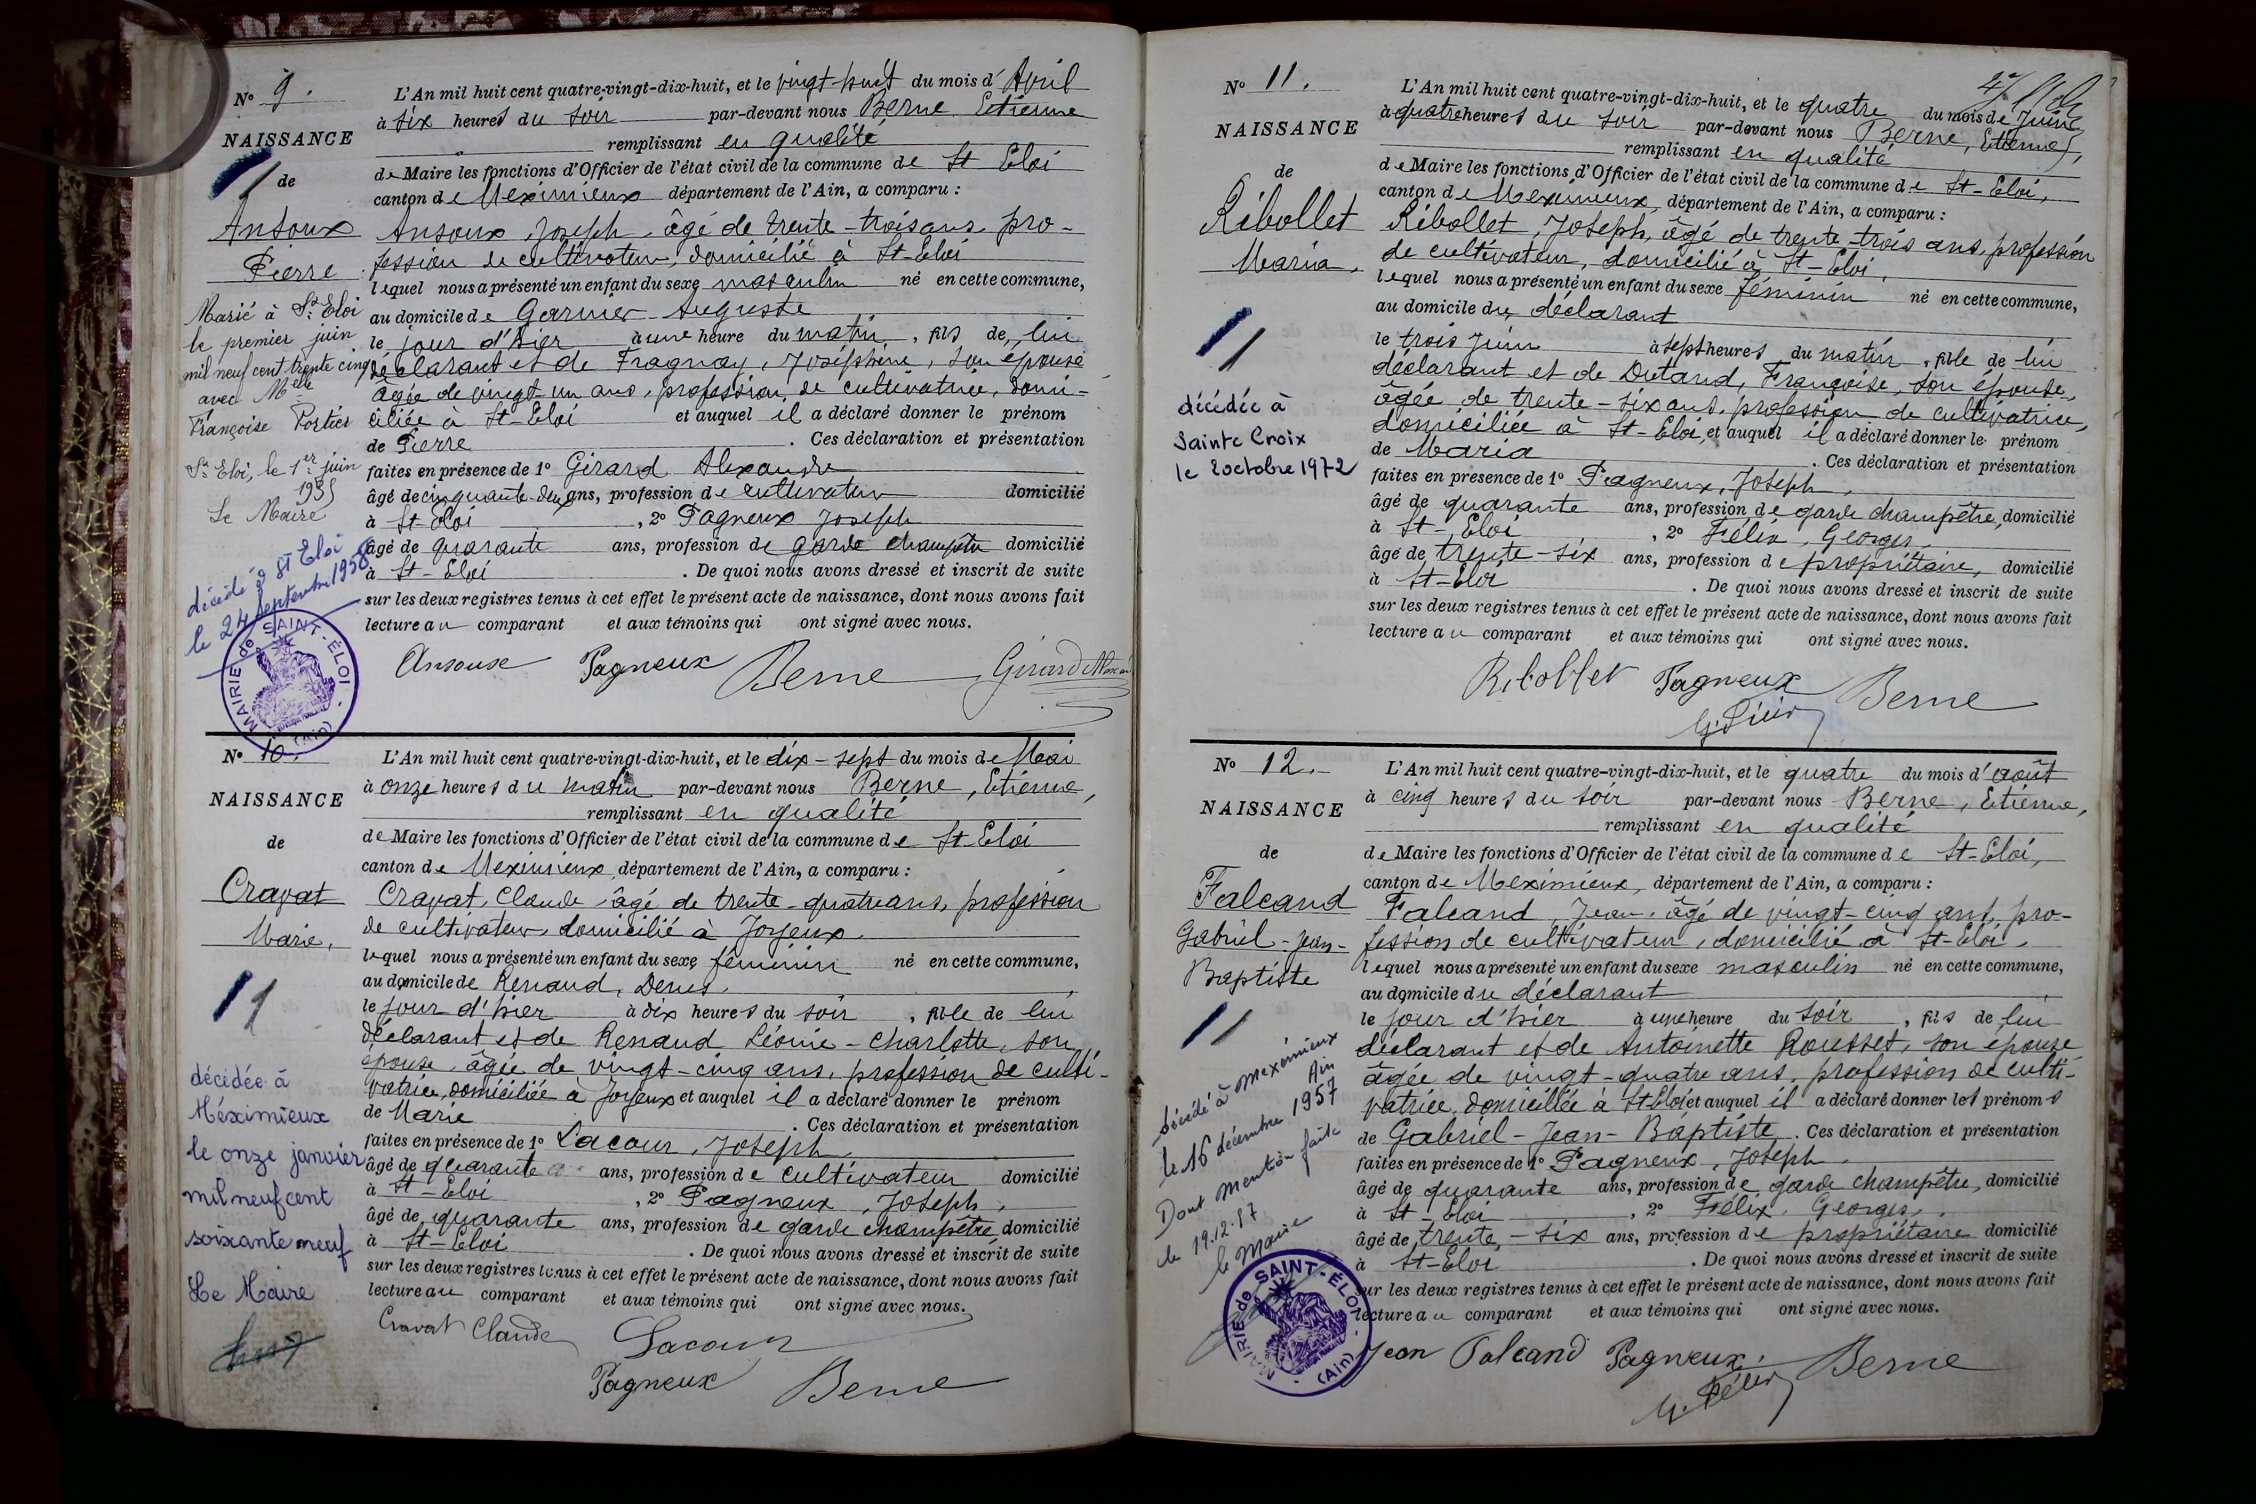 N° 9.
NAISSANCE
de
Ansoux
Pierre
Marié à St Eloi
le premier juin
mil neuf cent trente cinq
avec Melle
Françoise Portier
St Eloi, le 1er juin
1935
Le Maire
décédé à St Eloi
le 24 septembre 1958
MAIRIE de SAINT-ÉLOI
(Ain)
L'An mil huit cent quatre-vingt-dix-huit, et le vingt-huit du mois d'Avril
à six heures du soir par-devant nous Berne Etienne
remplissant en qualité
de Maire les fonctions d'Officier de l'état civil de la commune de St Eloi
canton de Meximieux département de l'Ain, a comparu :
Ansoux, Joseph, âgé de trente-trois ans, pro-
fession de cultivateur, domicilié à St-Eloi
lequel nous a présenté un enfant du sexe masculin né en cette commune,
au domicile de Garnier Auguste
le jour d'hier à une heure du matin, fils de lui
déclarant et de Fragnay, Joséphine, son épouse
âgée de vingt-un ans, profession de cultivatrice, domi-
ciliée à St-Eloi et auquel il a déclaré donner le prénom
de Pierre. Ces déclaration et présentation
faites en présence de 1° Girard Alexandre
âgé de cinquante-deux ans, profession de cultivateur domicilié
à St-Eloi, 2° Pagneux Joseph
âgé de quarante ans, profession de garde champêtre domicilié
à St-Eloi. De quoi nous avons dressé et inscrit de suite
sur les deux registres tenus à cet effet le présent acte de naissance, dont nous avons fait
lecture au comparant et aux témoins qui ont signé avec nous.
Ansoux Pagneux Berne Girard Alexan
N° 10.
NAISSANCE
de
Cravat
Marie,
décédée à
Méximieux
le onze janvier
mil neuf cent
soixante neuf
Le Maire
L'An mil huit cent quatre-vingt-dix-huit, et le dix-sept du mois de Mai
à onze heures du matin par-devant nous Berne, Etienne,
remplissant en qualité
de Maire les fonctions d'Officier de l'état civil de la commune de St-Eloi
canton de Meximieux, département de l'Ain, a comparu :
Cravat, Claude, âgé de trente-quatre ans, profession
de cultivateur, domicilié à Joyeux
lequel nous a présenté un enfant du sexe féminin né en cette commune,
au domicile de Renaud, Denis
le jour d'hier à dix heures du soir, fille de lui
déclarant et de Renaud Léonie-Charlotte, son
épouse, âgée de vingt-cinq ans, profession de culti-
vatrice, domiciliée à Joyeux et auquel il a déclaré donner le prénom
de Marie. Ces déclaration et présentation
faites en présence de 1° Lacour, Joseph,
âgé de quarante ans, profession de cultivateur domicilié
à St-Eloi, 2° Pagneux, Joseph,
âgé de quarante ans, profession de garde champêtre, domicilié
à St-Eloi. De quoi nous avons dressé et inscrit de suite
sur les deux registres tenus à cet effet le présent acte de naissance, dont nous avons fait
lecture au comparant et aux témoins qui ont signé avec nous.
Cravat Claude Lacour
Pagneux Berne
N° 11.
NAISSANCE
de
Ribollet
Maria,
décédée à
Sainte Croix
le 2 octobre 1972
L'An mil huit cent quatre-vingt-dix-huit, et le quatre du mois de Juin
à quatre heures du soir par-devant nous Berne, Etienne,
remplissant en qualité
de Maire les fonctions d'Officier de l'état civil de la commune de St-Eloi,
canton de Meximieux, département de l'Ain, a comparu :
Ribollet, Joseph, âgé de trente-trois ans, profession
de cultivateur, domicilié à St-Eloi,
lequel nous a présenté un enfant du sexe féminin né en cette commune,
au domicile du déclarant
le trois Juin à sept heures du matin, fille de lui
déclarant et de Dutand, Françoise, son épouse,
âgée de trente-six ans, profession de cultivatrice,
domiciliée à St-Eloi, et auquel il a déclaré donner le prénom
de Maria. Ces déclaration et présentation
faites en présence de 1° Pagneux, Joseph,
âgé de quarante ans, profession de garde champêtre, domicilié
à St-Eloi, 2° Félix, Georges,
âgé de trente-six ans, profession de propriétaire, domicilié
à St-Eloi. De quoi nous avons dressé et inscrit de suite
sur les deux registres tenus à cet effet le présent acte de naissance, dont nous avons fait
lecture au comparant et aux témoins qui ont signé avec nous.
Ribollet Pagneux Berne
G. Félix
N° 12.
NAISSANCE
de
Falcand
Gabriel-Jean-
Baptiste
Décédé à Meximieux
Ain
le 16 décembre 1957
Dont mention faite
le 19.12.57
le Maire
MAIRIE de SAINT-ÉLOI
(Ain)
L'An mil huit cent quatre-vingt-dix-huit, et le quatre du mois d'août
à cinq heures du soir par-devant nous Berne, Etienne,
remplissant en qualité
de Maire les fonctions d'Officier de l'état civil de la commune de St-Eloi,
canton de Meximieux, département de l'Ain, a comparu :
Falcand, Jean, âgé de vingt-cinq ans, pro-
fession de cultivateur, domicilié à St-Eloi,
lequel nous a présenté un enfant du sexe masculin né en cette commune,
au domicile du déclarant
le jour d'hier à une heure du soir, fils de lui
déclarant et de Antoinette Rousset, son épouse
âgée de vingt-quatre ans, profession de culti-
vatrice, domiciliée à St Eloi et auquel il a déclaré donner les prénoms
de Gabriel-Jean-Baptiste. Ces déclaration et présentation
faites en présence de 1° Pagneux, Joseph
âgé de quarante ans, profession de garde champêtre, domicilié
à St-Eloi, 2° Félix, Georges,
âgé de trente-six ans, profession de propriétaire domicilié
à St-Eloi. De quoi nous avons dressé et inscrit de suite
sur les deux registres tenus à cet effet le présent acte de naissance, dont nous avons fait
lecture au comparant et aux témoins qui ont signé avec nous.
Jean Falcand Pagneux Berne
G. Félix